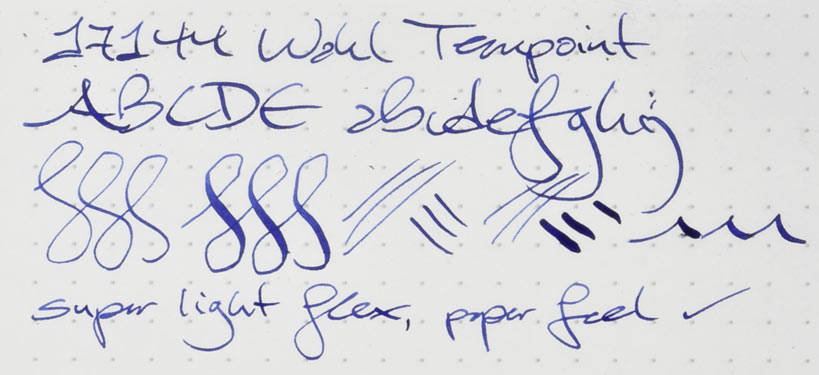 17144 Wahl Tempoint
ABCDE abcdefghij
super light flex, paper feel ✓